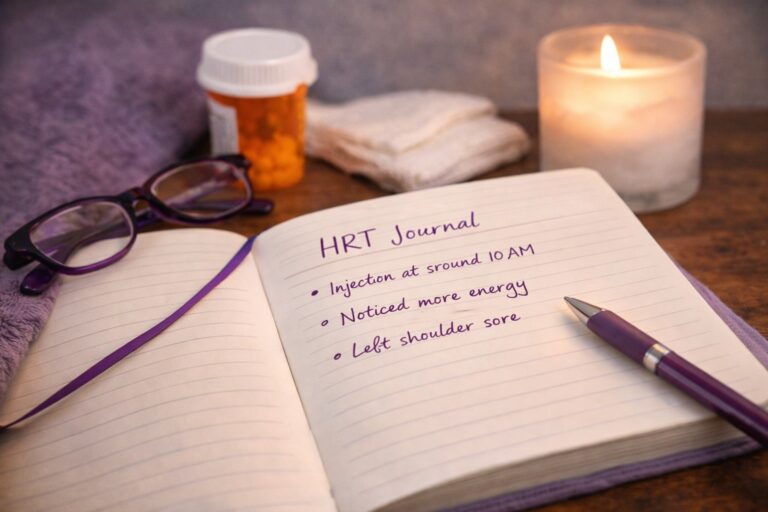 HRT Journal
• Injection at sround 10 AM
• Noticed more energy
• Left shoulder sore